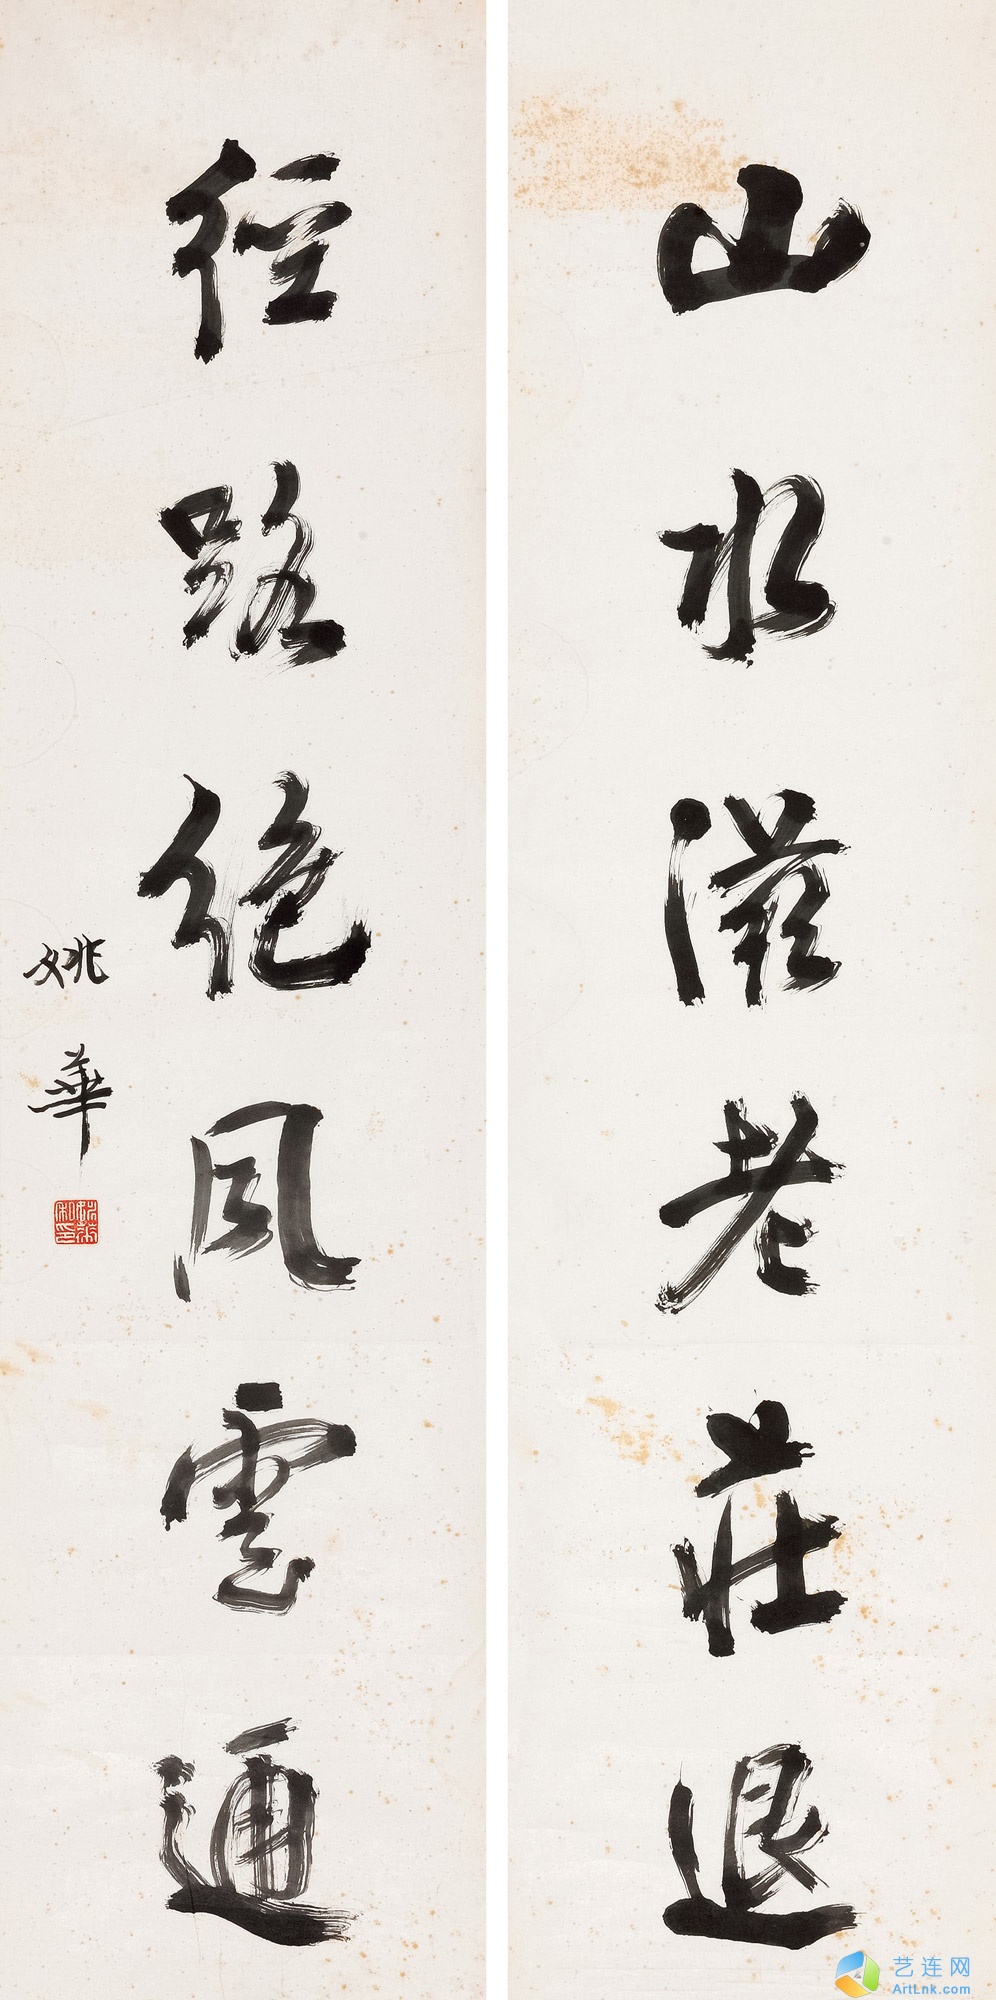 山水滋老莊退
徑路絕風雲通
姚華
艺连网
ArtLnk.com